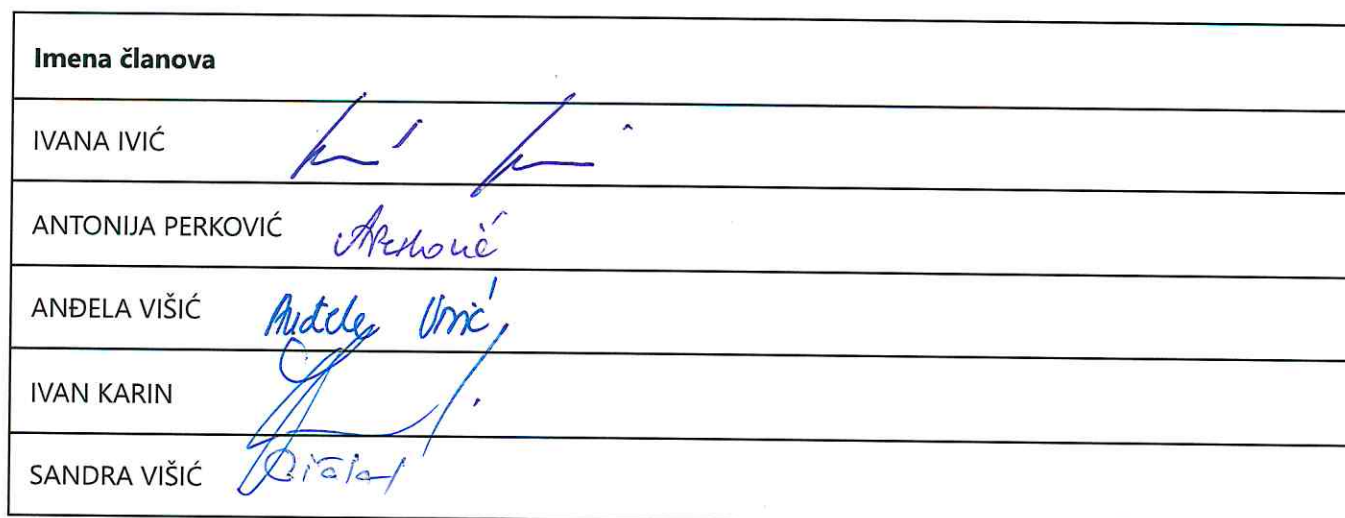 Imena članova
IVANA IVIĆ
ANTONIJA PERKOVIĆ APerković
ANĐELA VIŠIĆ Anđela Višić
IVAN KARIN
SANDRA VIŠIĆ